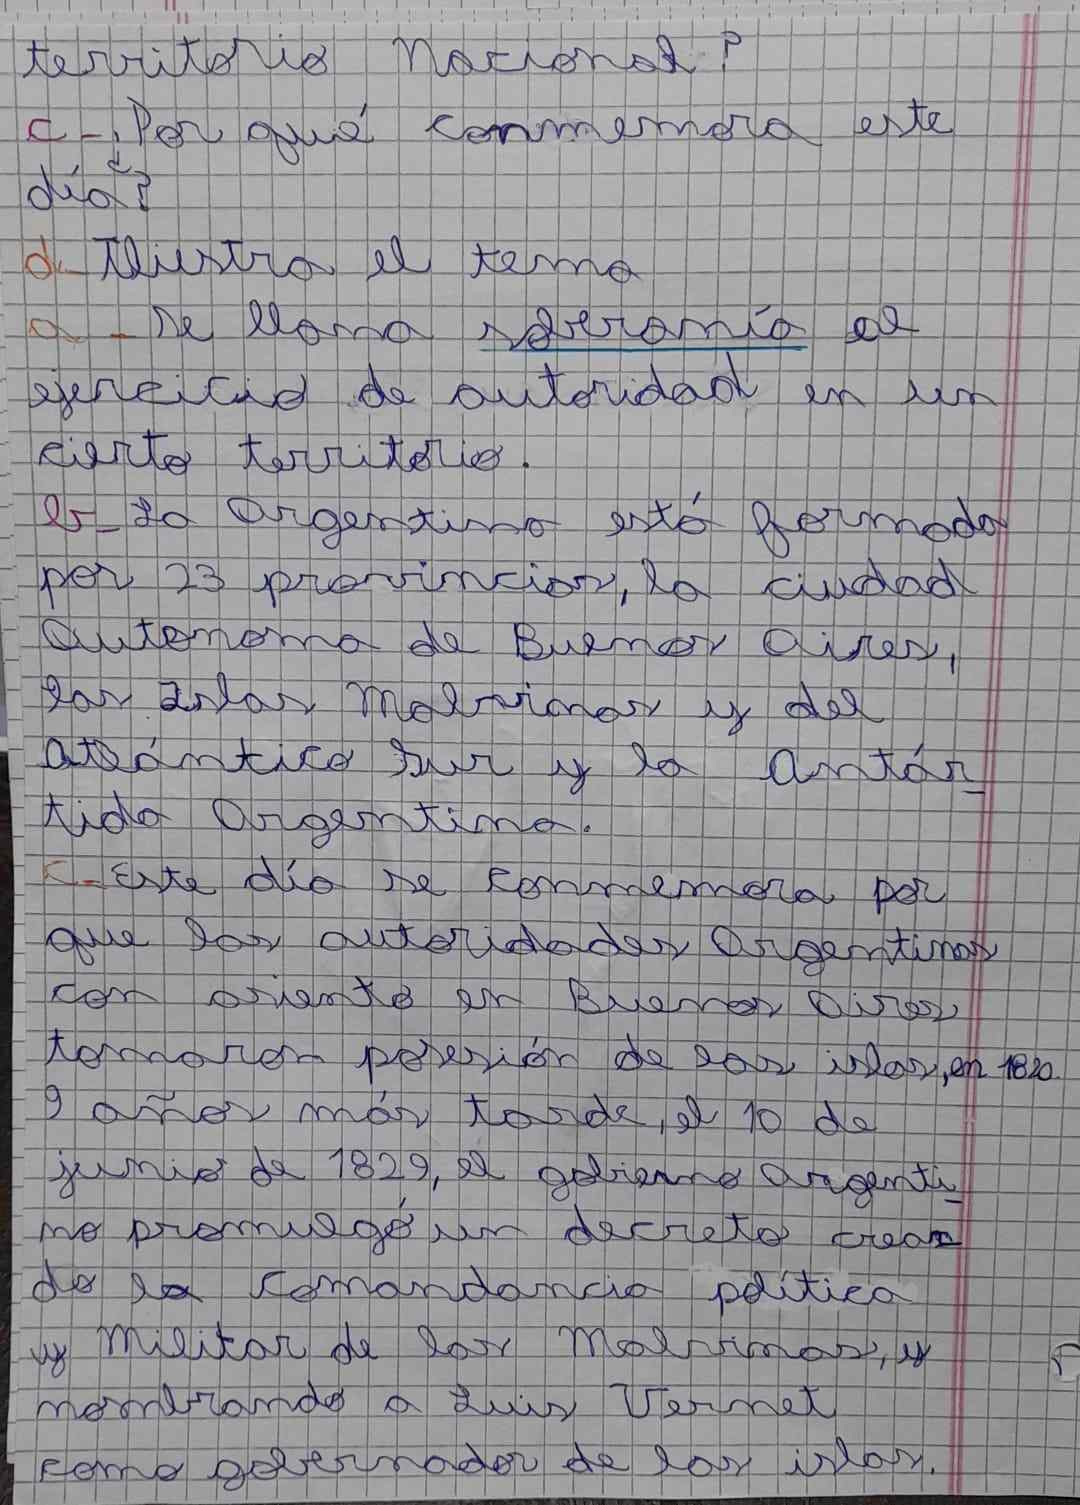 territorio Nacional?
c-¿Por qué conmemora este
día?
d- Ilustra el tema
a - Se llama soberanía al
ejercicio de autoridad en un
cierto territorio.
b- La Argentina está formada
por 23 provincias, la ciudad
Autonoma de Buenos Aires,
las Islas Malvinas y del
Atlántico Sur y la Antár
tida Argentina.
c-Este día se conmemora por
que las autoridades Argentinas
con asiento en Buenos Aires
tomaron posesión de las islas, en 1820.
9 años más tarde, el 10 de
junio de 1829, el gobierno argenti
no promulgó un decreto crean
do la comandancia política
y Militar de las Malvinas, y
nombrando a Luis Vernet
como gobernador de las islas.